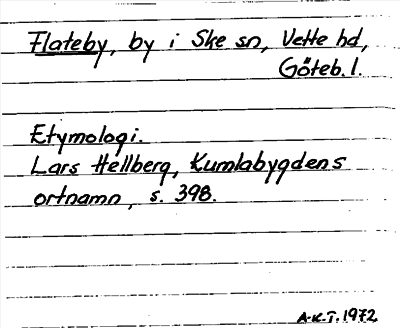 Flateby, by i Ske sn, Vette hd,
Göteb. l.
Etymologi.
Lars Hellberg, Kumlabygdens
ortnamn, s. 398.
A.K.T. 1972